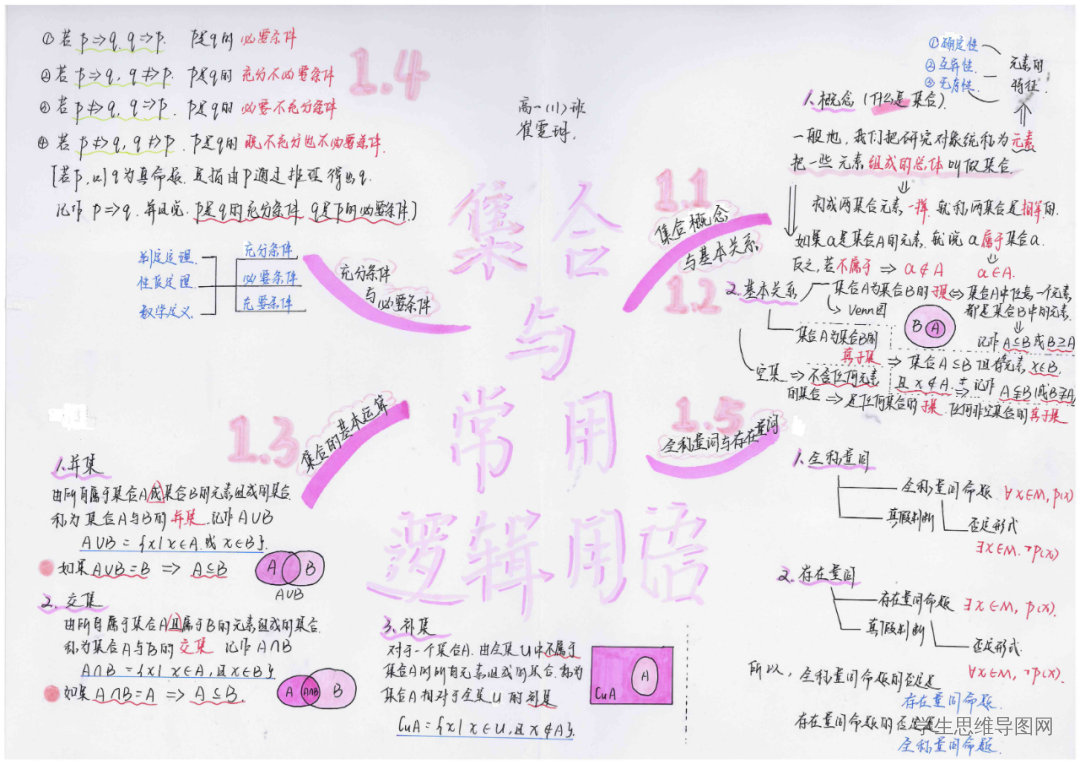 ① 若 p⇒q, q⇒p. p是q的 必要条件
② 若 p⇒q, q⇏p. p是q的 充分不必要条件
③ 若 p⇏q, q⇒p. p是q的 必要不充分条件
④ 若 p⇏q, q⇏p. p是q的 既不充分也不必要条件.
q为真命题. 是指由p通过推理得出q.
记作 p⇒q. 并且说. p是q的充分条件 q是p的必要条件.]
1.4
判定定理
性质定理.
数学定义.
充分条件
必要条件
充要条件
充分条件
与必要条件
高一(11)班
集合
与
常用
逻辑用语
1.1
集合概念
与基本关系
1.2
①确定性
②互异性
③无序性
元素的
特征.
1.概念 (什么是集合)
一般地, 我们把研究对象统称为元素
把一些元素组成的总体叫做集合.
构成两集合元素一样. 就称两集合是相等的.
如果a是集合A的元素. 就说a属于集合a.
反之, 若不属于 ⇒ a∉A a∈A.
2.基本关系
集合A为集合B的子集 ⇔ 集合A中任意一个元素
都是集合B中的元素.
Venn图
B A
记作 A⊆B 或 B⊇A
集合A为集合B的
真子集 ⇒ 集合A⊆B 但有元素 x∈B.
且 x∉A. ⇒ 记作 A⫋B 或 B⫌A
空集 ⇒ 不含任何元素
的集合 ⇒ 是任何集合的子集. 任何非空集合的真子集
1.3
集合的基本运算
1.并集
由所有属于集合A或集合B的元素组成的集合
称为集合A与B的并集. 记作 A∪B
A∪B = {x|x∈A.或 x∈B}.
如果A∪B=B ⇒ A⊆B
A B
A∪B
2.交集
由所有属于集合A且属于B的元素组成的集合.
称为集合A与B的交集 记作 A∩B
A∩B = {x|x∈A, 且 x∈B}.
如果A∩B=A ⇒ A⊆B.
A A∩B B
3.补集
对于一个集合A. 由全集U中不属于
集合A的所有元素组成的集合. 称为
集合A相对于全集U的补集
CuA = {x|x∈U, 且 x∉A}.
CuA A
1.5
全称量词与存在量词
1.全称量词
全称量词命题 ∀x∈M, p(x)
真假判断
否定形式
∃x∈M. ¬p(x)
2.存在量词
存在量词命题 ∃x∈M, p(x).
真假判断
否定形式.
∀x∈M, ¬p(x).
所以, 全称量词命题的否定是
存在量词命题.
存在量词命题的否定是
全称量词命题.
学生思维导图网